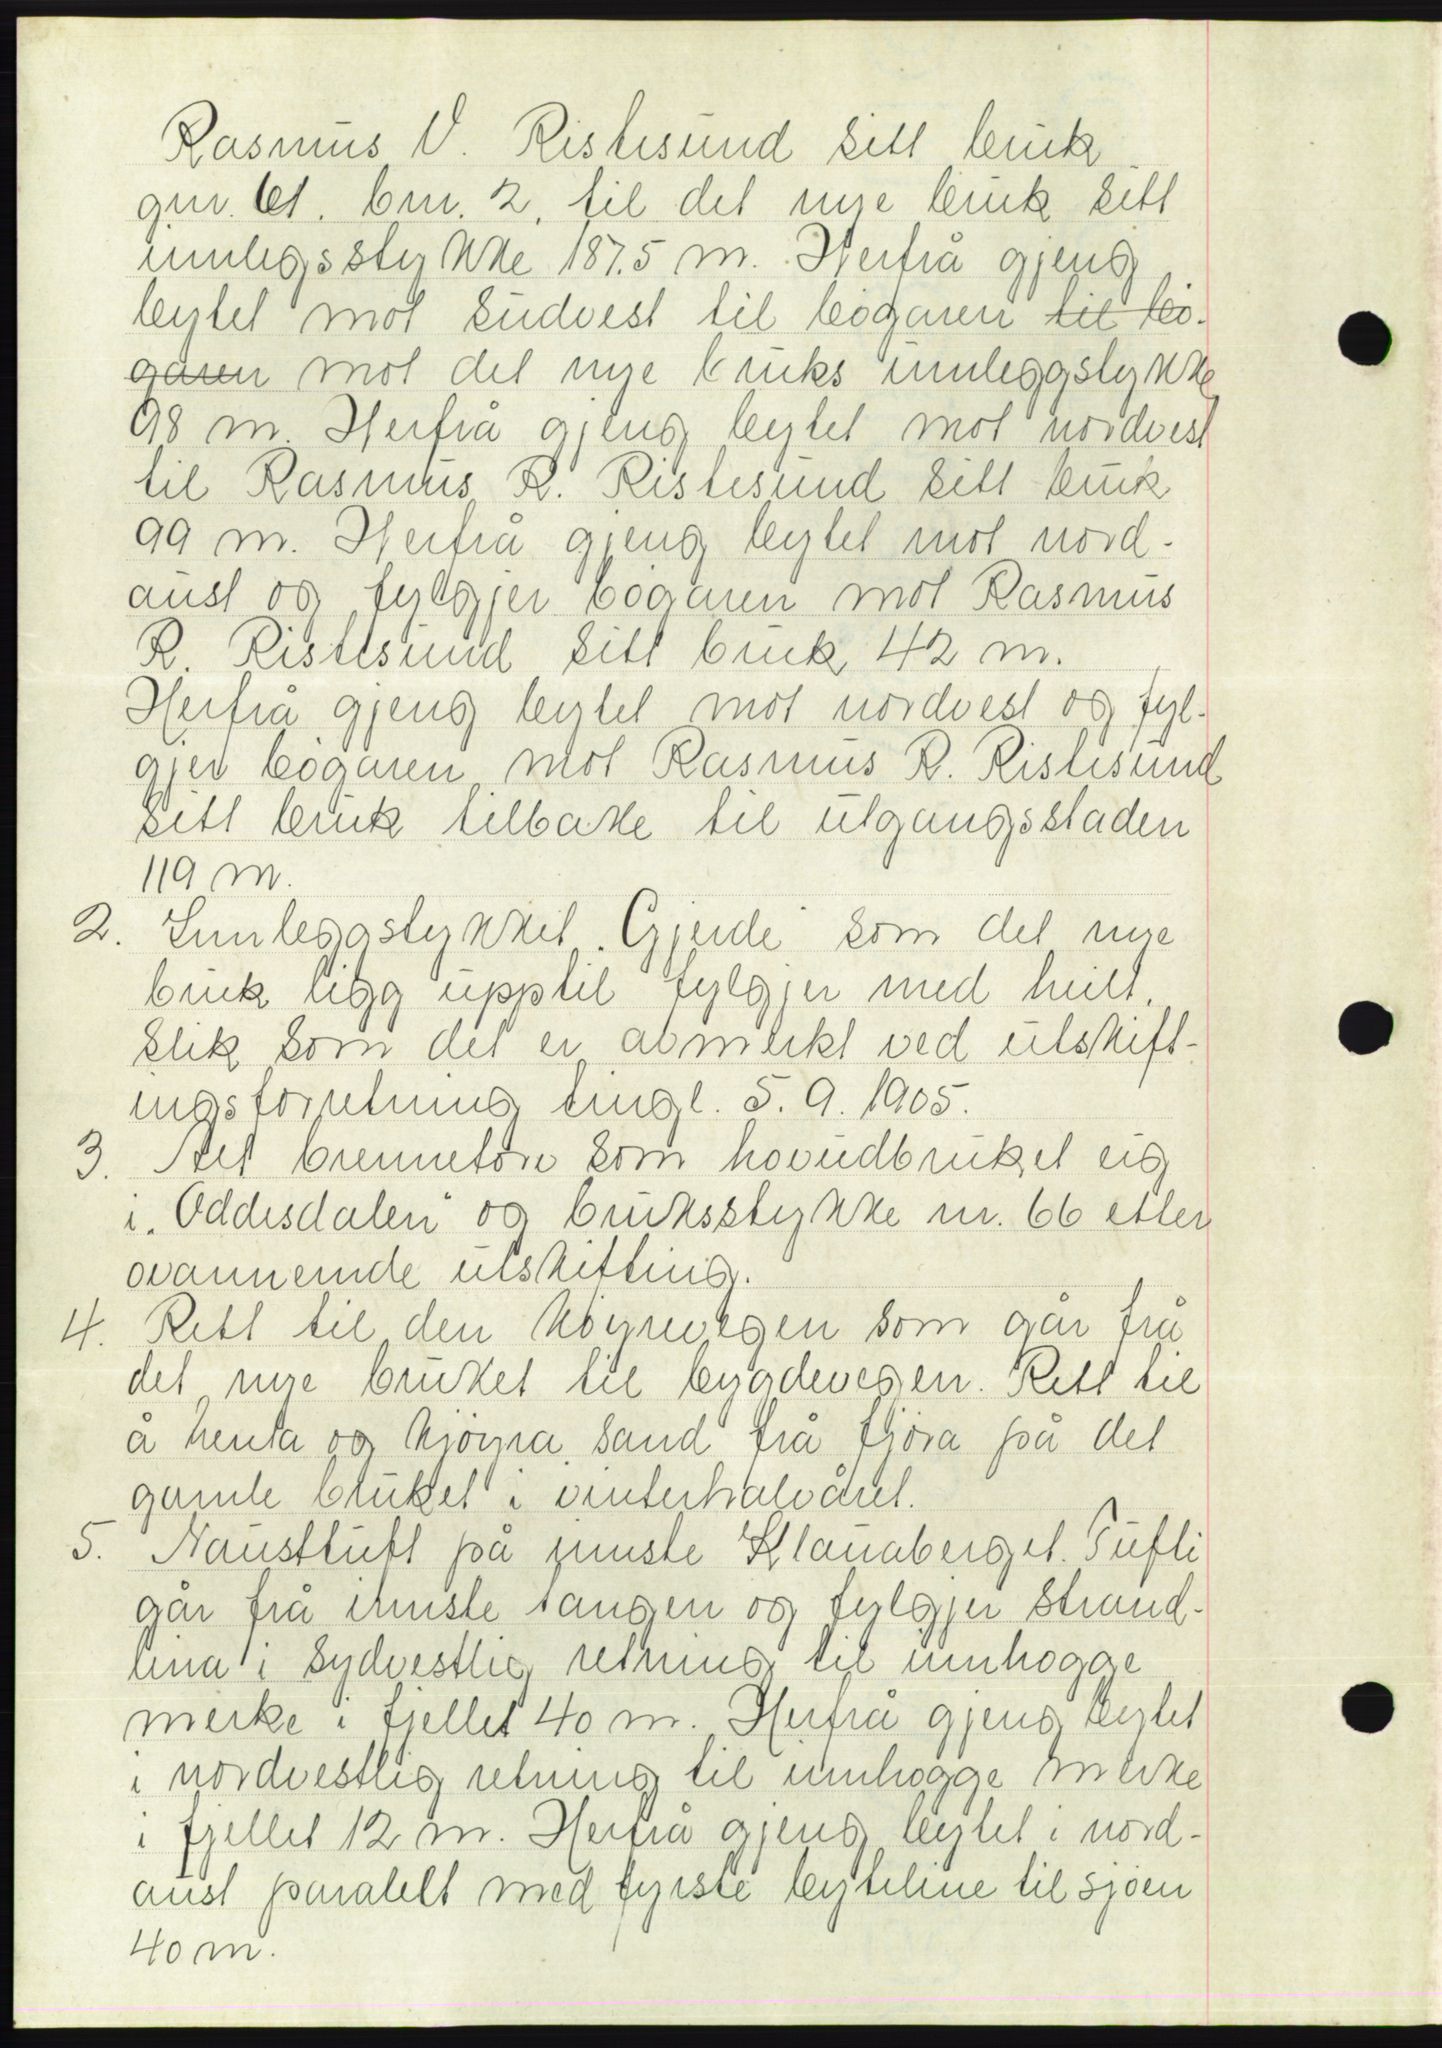 Rasmus V. Ristesund sitt bruk
gnr. 61. bnr. 2, til det nye bruk sitt
innlegsstykke 187.5 m. Herfrå gjeng
bytet mot sudvest til bøgaren til bø-
garen mot det nye bruks innleggstykke
98 m. Herfrå gjeng bytet mot nordvest
til Rasmus R. Ristesund sitt bruk
99 m. Herfrå gjeng bytet mot nord-
aust og fylgjer bøgaren mot Rasmus
R. Ristesund sitt bruk 42 m.
Herfrå gjeng bytet mot nordvest og fyl-
gjer bøgaren mot Rasmus R. Ristesund
sitt bruk tilbake til utgangsstaden
119 m.
2. Innleggstykket "Gjerde" som det nye
bruk ligg upptil fylgjer med heilt,
slik som det er avmerkt ved utskift-
ingsforretning tingl. 5. 9. 1905.
3. Alt brennetorv som hovudbruket eig
i "Oddesdalen" og bruksstykke nr. 66 etter
ovannemde utskifting.
4. Rett til den køyrevegen som går frå
det nye bruket til bygdevegen. Rett til
å henta og kjøyra sand frå fjøra på det
gamle bruket i vinterhalvåret.
5. Nausttuft på inste Klauvaberget. Tufti
går frå inste tangen og fylgjer strand-
lina i sydvestlig retning til innhogge
merke i fjellet 40 m. Herfrå gjeng bytet
i nordvestlig retning til innhogge merke
i fjellet 12 m. Herfrå gjeng bytet i nord-
aust paralelt med fyrste byteline til sjøen
40 m.